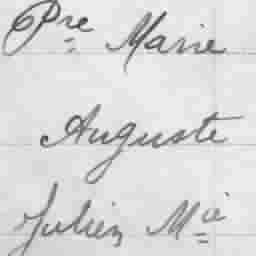 Pre Marie
Auguste
Julien Mie